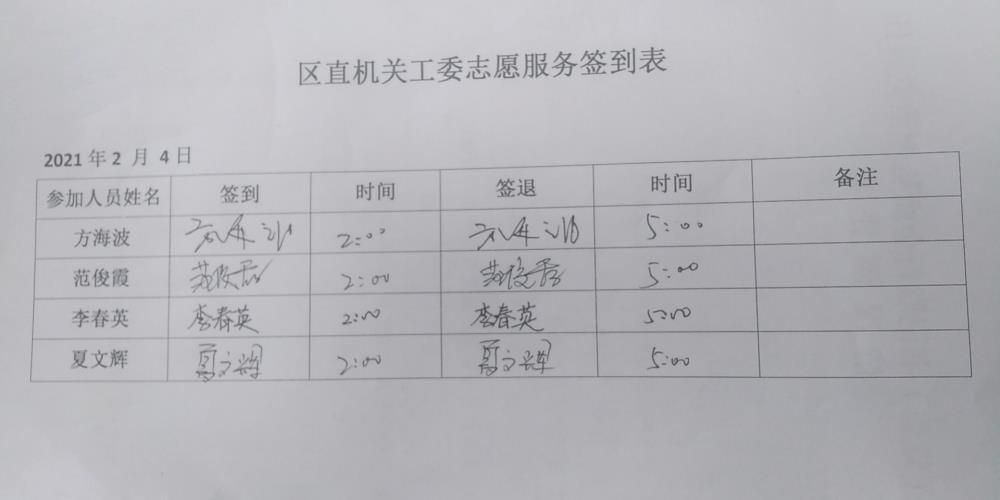 区直机关工委志愿服务签到表
2021年2 月 4日
参加人员姓名 签到 时间 签退 时间 备注
方海波 方海波 2:00 方海波 5:00
范俊霞 范俊霞 2:00 范俊霞 5:00
李春英 李春英 2:00 李春英 5:00
夏文辉 夏文辉 2:00 夏文辉 5:00